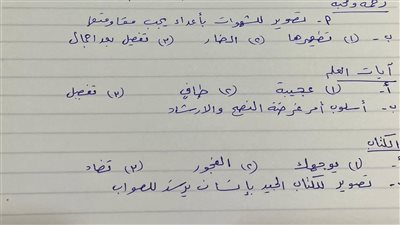 رحمة ومحبة
أ- تصوير للشهوات بأعداء يجب مقاومتها
ب- (١) تضميرها (٢) الضار (٣) تفصيل بعد إجمال
آيات العلم
أ- (١) عجيبة (٢) طافٍ (٣) تفصيل
ب- أسلوب أمر غرضه النصح والإرشاد
الكتاب
أ- (١) يوجهك (٢) الفجور (٣) تضاد
ب- تصوير للكتاب الجيد بإنسان يرشد للصواب